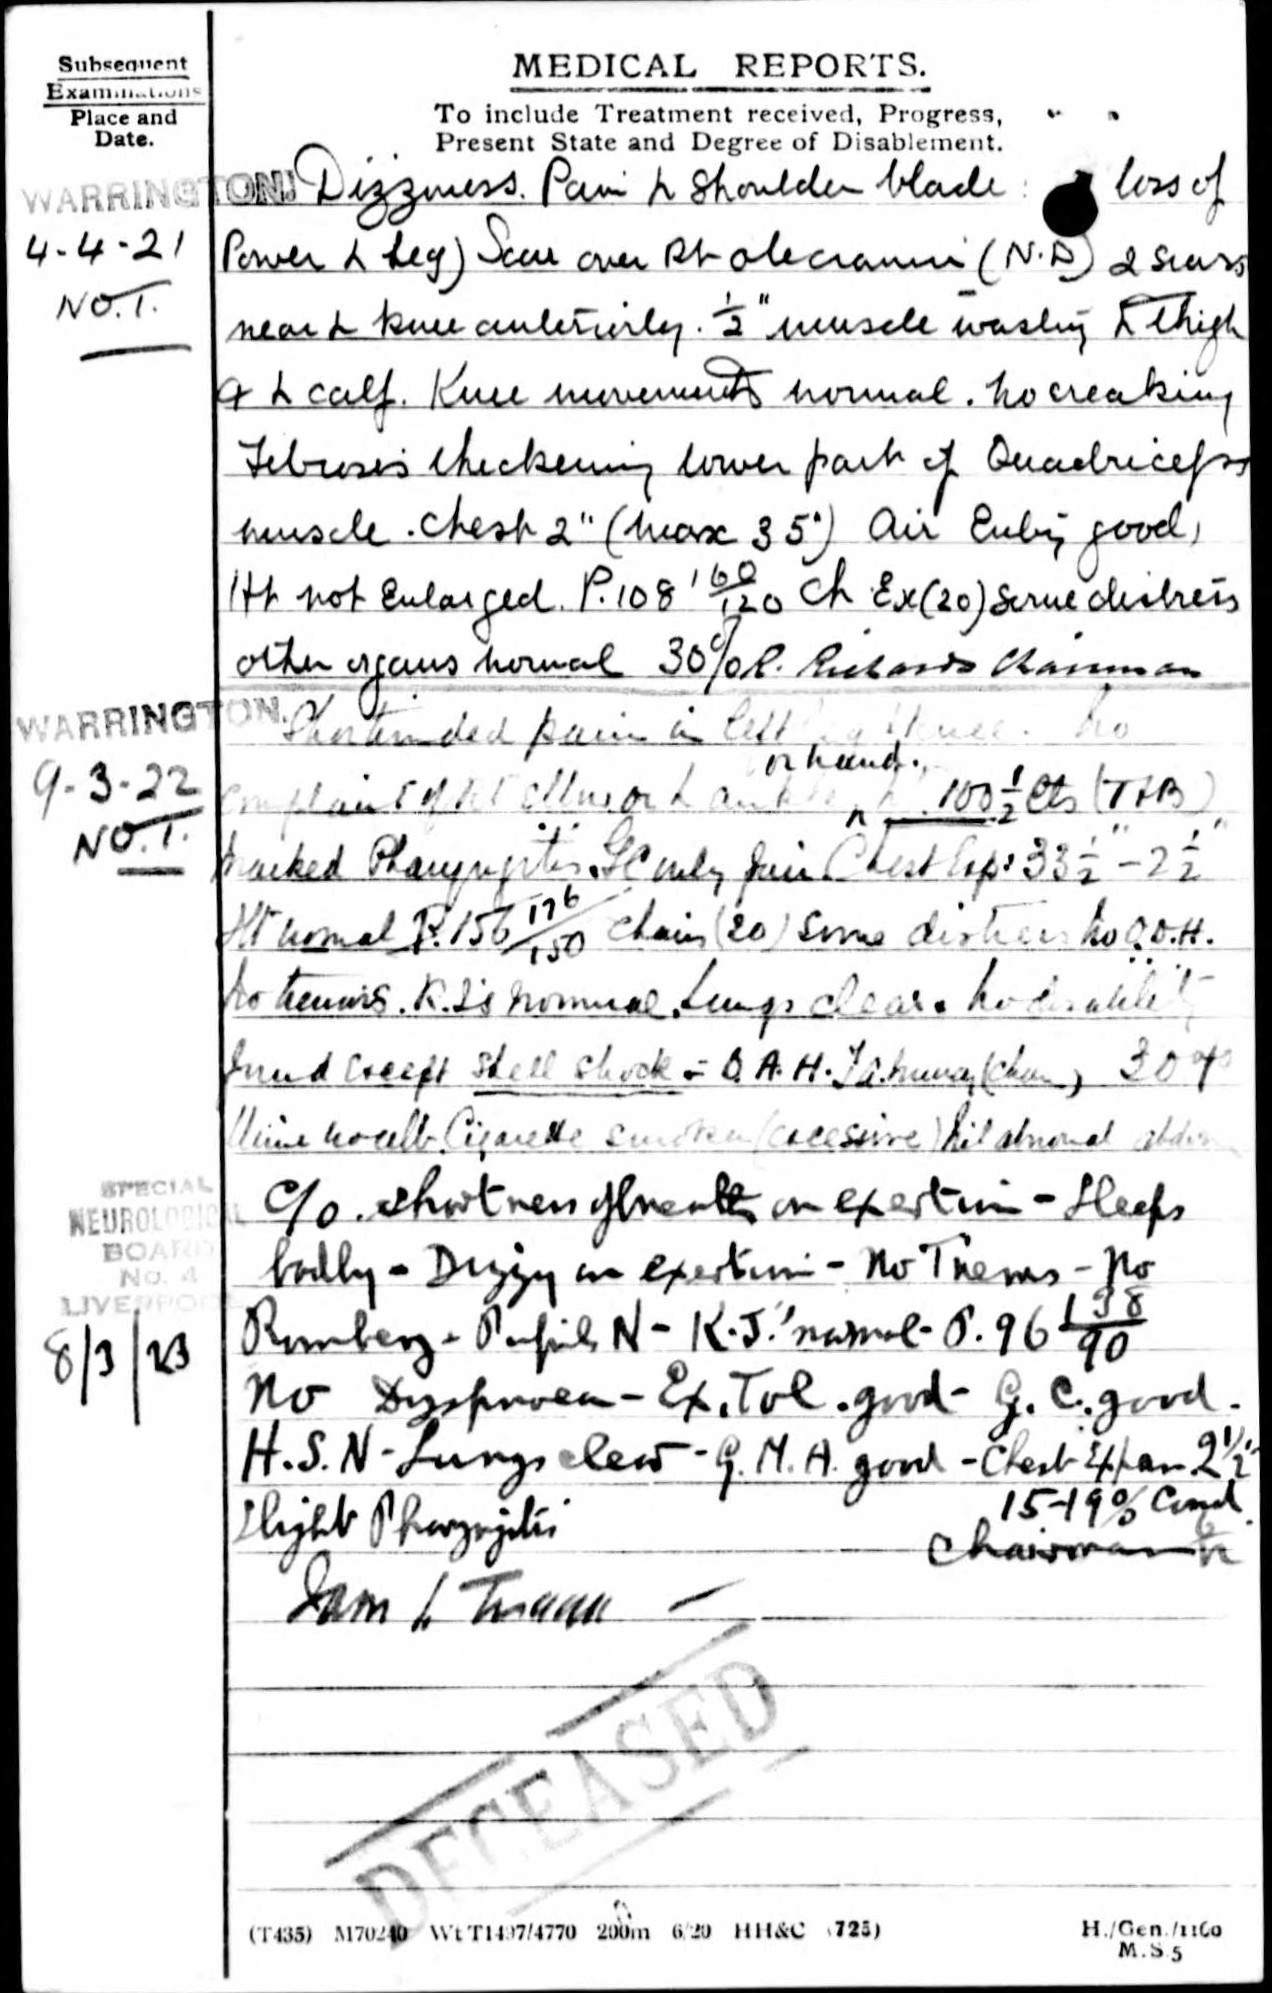 Subsequent
Examinations
Place and
Date.
MEDICAL REPORTS.
To include Treatment received, Progress,
Present State and Degree of Disablement.
WARRINGTON.
4-4-21
NO. 1.
Dizziness. Pain L Shoulder blade : loss of
Power L Leg) Scar over Rt olecranon (N.D) 2 scars
near L knee anteriorly. ½" muscle wasting L thigh
& L calf. Knee movements normal. no creaking
Fibrosis thickening lower part of Quadriceps
muscle. Chest 2" (max 35") Air Entry good,
Ht not Enlarged. P. 108 160/120 Ch Ex (20) some distress
other organs normal 30% R. Richards Chairman
WARRINGTON.
9-3-22
NO. 1.
Shortwinded pain in left leg & knee. No
or hand.
complaint of Rt elbow or L 100½ lbs
marked Pharyngitis. G C only fair Chest Exp: 33½" - 2½"
Ht normal P. 156 176/150 chair (20) some distress no
no tremors. K.J's normal. Lungs clear. No disability
found except shell shock = D.A.H. 30%
Urine no alb. Cigarette smoker (excessive) Nil abnormal
SPECIAL
NEUROLOGICAL
BOARD
No. 4
LIVERPOOL
8/3/23
C/o. shortness of breath on exertion - Sleeps
badly - Dizzy on exertion - No Tremors - No
Romberg - Pupils N - K.J.'s normal - P. 96 138/90
No Dyspnoea - Ex. Tol. good - G. C. good -
H.S.N - Lungs clear - G. M. A. good - Chest Expan 2½"
Slight Pharyngitis
15-19% Cond.
Chairman
DECEASED
(T435) M70240 Wt T1497/4770 200m 6/20 HH&C (725)
H./Gen./1160
M.S.5